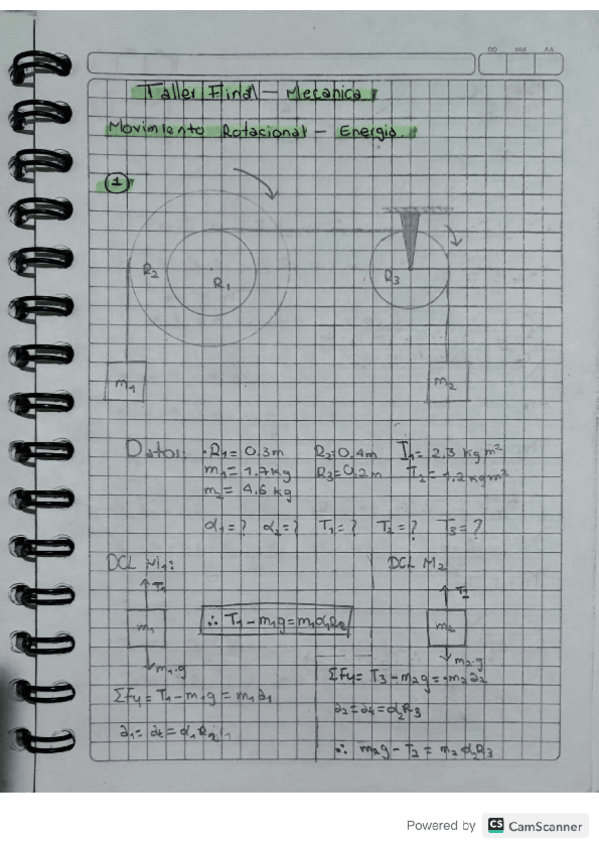 DD MM AA
Taller Final - Mecanica
Movimiento Rotacional - Energia.
1
R2 R1 R3
m1 m2
Datos: · R1 = 0.3m R2=0.4m I1= 2.3 kg m²
m1= 1.7kg R3=0.2m I2= 1.2 kg m²
m2= 4.5 kg
α1=? α2=? T1=? T2=? T3=?
DCL M1: DCL M2
T1 T3
m1 ∴ T1 - m1g = m1α1R2 m2
m1·g m2·g
ΣFy = T1 - m1g = m1a1 ΣFy = T3 - m2g = -m2a2
a1 = at = α1R2 a2 = at = α2R3
∴ m2g - T2 = m2α2R3
Powered by CS CamScanner